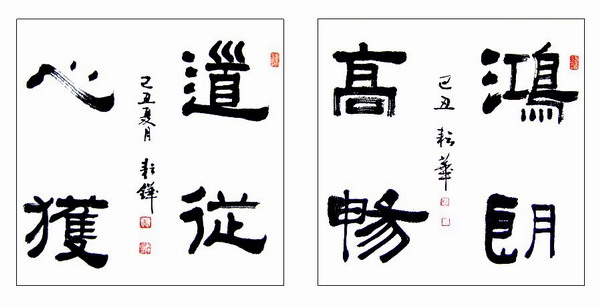 道従
心獲
己丑夏月 耘鏵
鴻朗
高暢
己丑 耘華